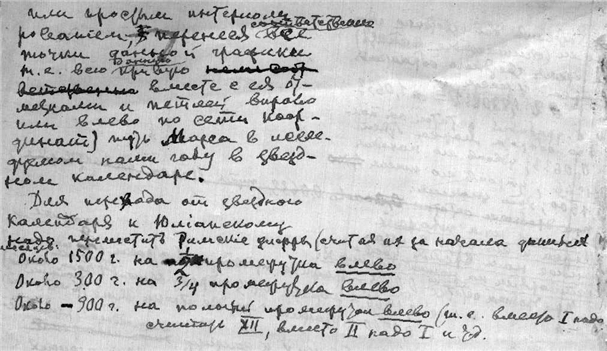 или простым интерполи-
рованием перенеся соответственно все
точки данной графики
т.е. всю кривую
вместе с ея от-
метками и петлей вправо
или влево по сети коор-
динат) путь Марса в иссле-
дуемом нами году в звезд-
ном календаре.
Для перевода от звездного
календаря к Юлианскому
надо переместить Римские цифры (считая их за начала
Около 1500 г. на промежутка влево
Около 300 г. на 3/4 промежутка влево
Около −900 г. на полный промежуток влево (т.е. вместо I надо
считать XII, вместо II надо I и т.д.